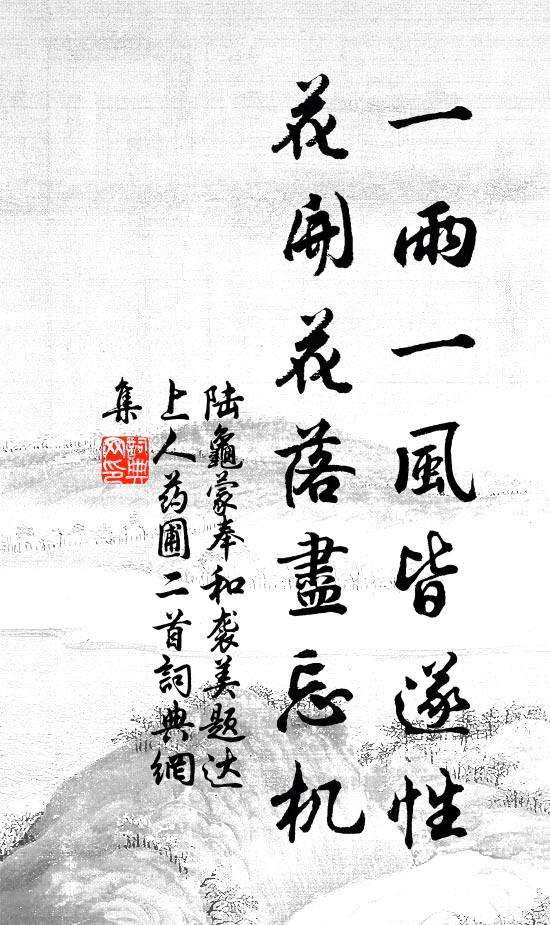 一雨一風皆遂性
花開花落盡忘机
陆龜蒙奉和袭美题达
上人药圃二首詞典網
集